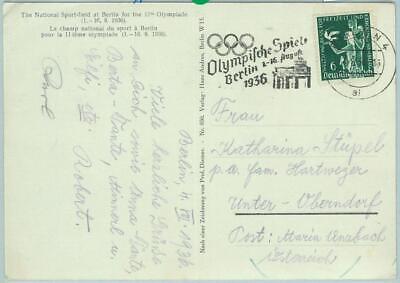 The National Sport-field at Berlin for the 11th Olympiade
(1.-16. 8. 1936).
Le champ national du sport à Berlin
pour la 11ième olympiade (1.-16. 8. 1936).
Berlin, 4. VIII. 1936.
Viele herzliche Grüsse
an Dich, sowie Anna-Tante,
Berta-Tante, Annerl u.
Robert.
Nach einer Zeichnung von Prof. Diemer.
Nr. 830. Verlag Hans Andres, Berlin W 15.
Olympische Spiele
Berlin 1.-16. August
1936
6
Frau
Katharina Stüpel
p. a. fam. Hartweger
Unter-Oberndorf
Post: Maria Anzbach
Österreich